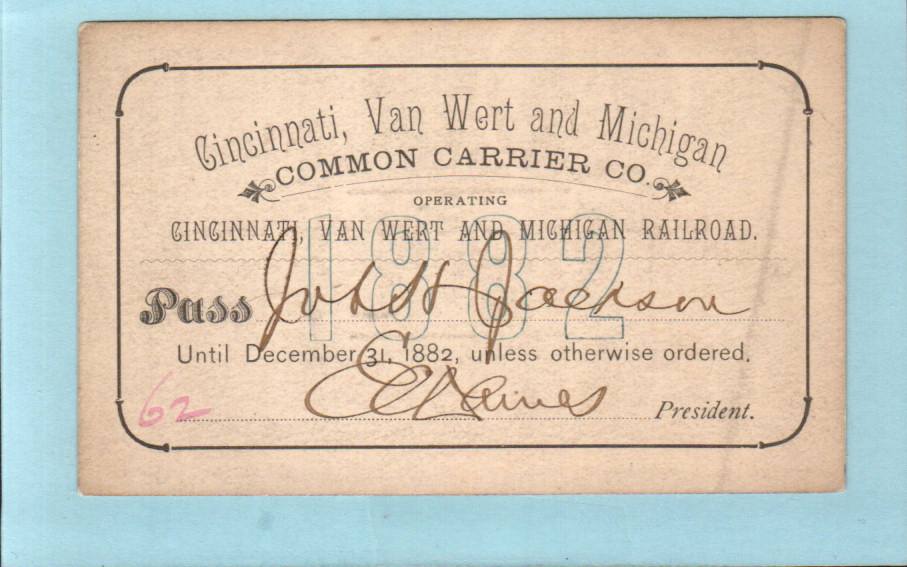 Cincinnati, Van Wert and Michigan
COMMON CARRIER CO.
OPERATING
CINCINNATI, VAN WERT AND MICHIGAN RAILROAD.
1882
Pass Jackson
Until December 31, 1882, unless otherwise ordered.
62 President.